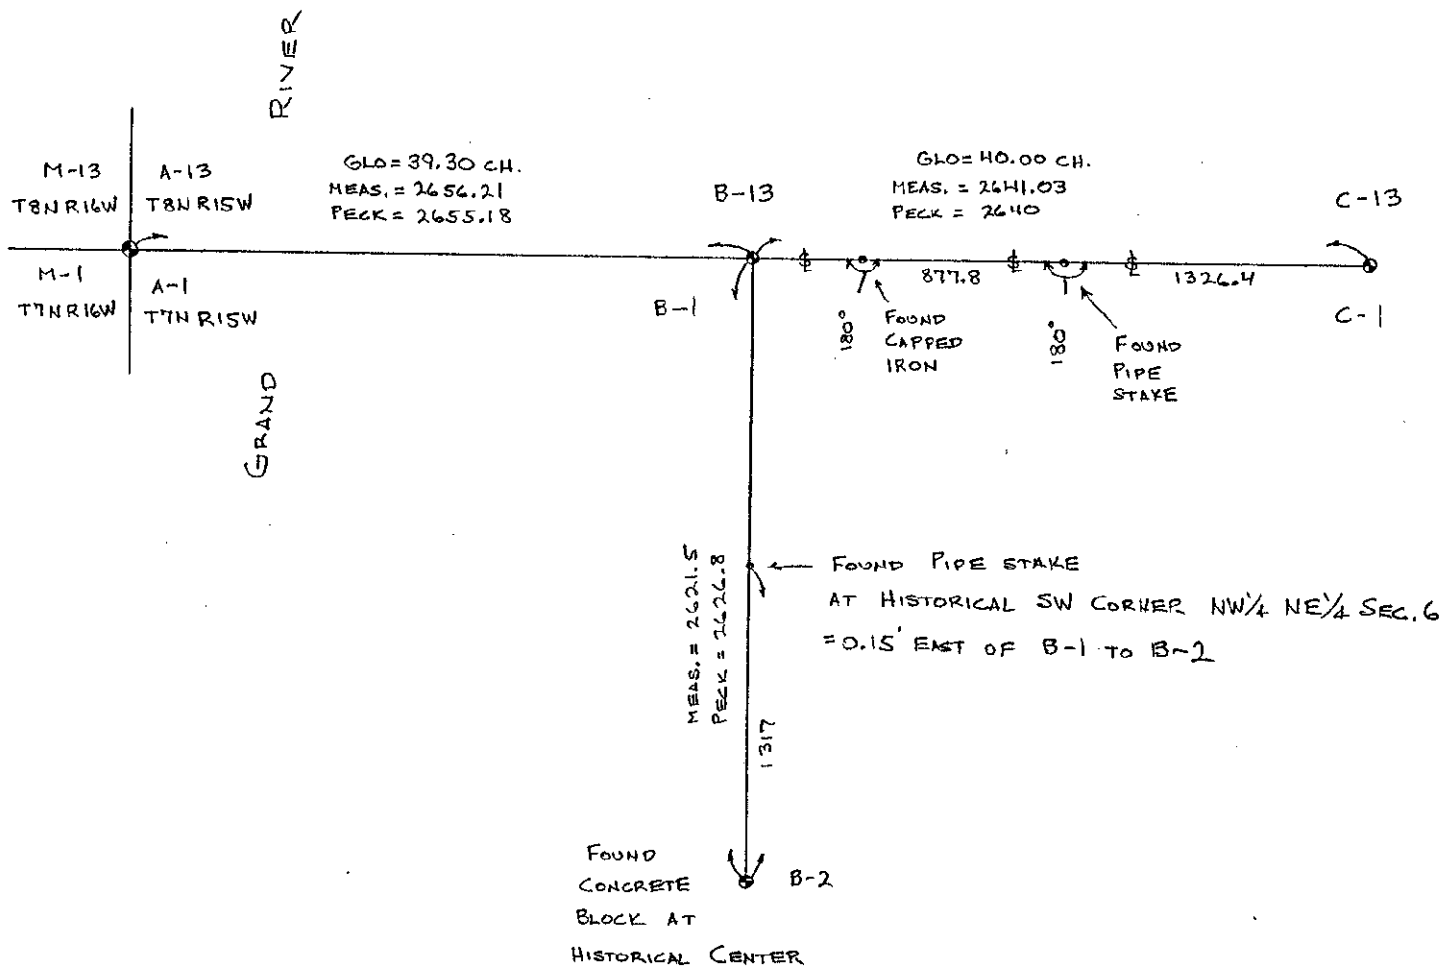 RIVER
M-13
T8N R16W
A-13
T8N R15W
GLO = 39.30 CH.
MEAS. = 2656.21
PECK = 2655.18
B-13
GLO = 40.00 CH.
MEAS. = 2641.03
PECK = 2640
C-13
M-1
T7N R16W
A-1
T7N R15W
B-1
877.8
1326.4
C-1
180°
FOUND
CAPPED
IRON
180°
FOUND
PIPE
STAKE
GRAND
MEAS. = 2621.5
PECK = 2626.8
FOUND PIPE STAKE
AT HISTORICAL SW CORNER NW¼ NE¼ SEC. 6
= 0.15' EAST OF B-1 TO B-2
1317
FOUND
CONCRETE
BLOCK AT
HISTORICAL CENTER
B-2